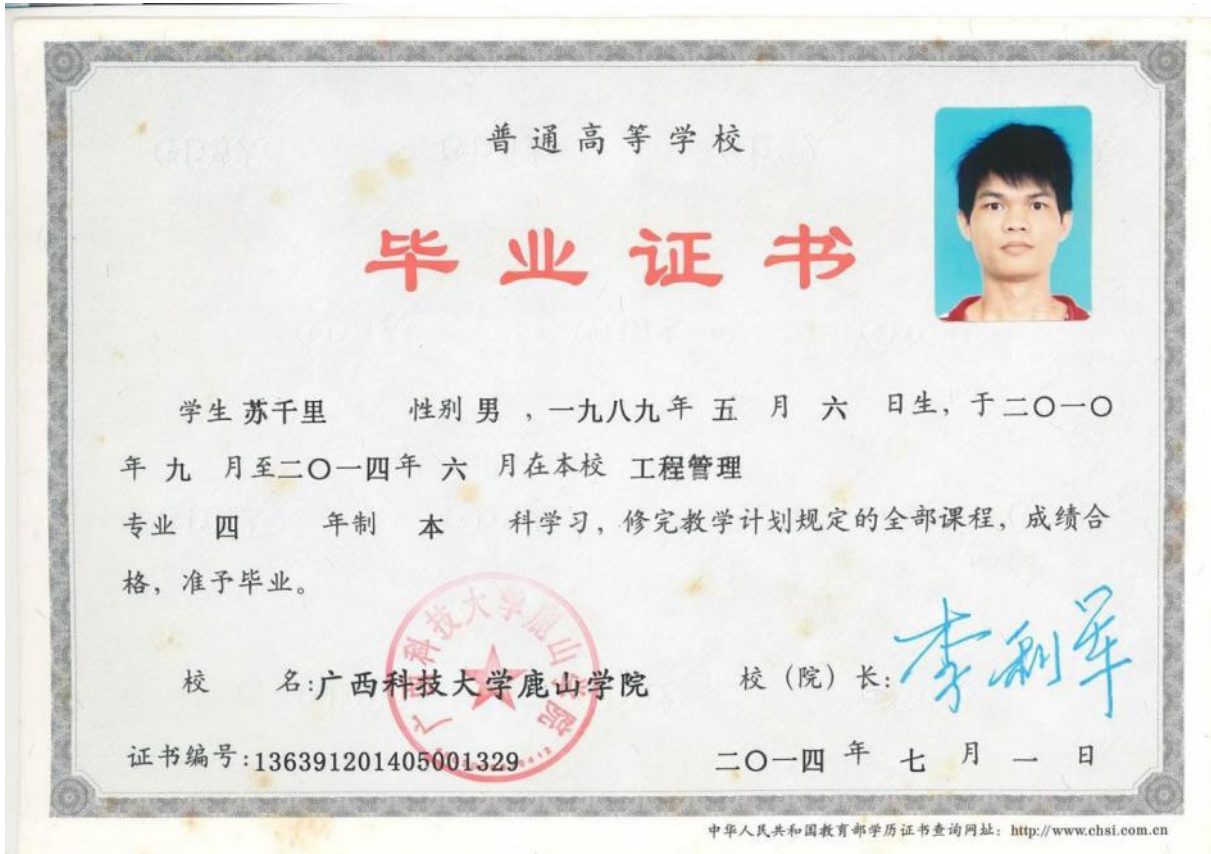 普通高等学校
毕业证书
学生 苏千里 性别 男 ，一九八九年 五 月 六 日生，于二〇一〇
年 九 月至二〇一四年 六 月在本校 工程管理
专业 四 年制 本 科学习，修完教学计划规定的全部课程，成绩合
格，准予毕业。
广西科技大学鹿山学院
校 名:广西科技大学鹿山学院 校（院）长: 李利军
证书编号:136391201405001329 二〇一四 年 七 月 一 日
中华人民共和国教育部学历证书查询网址：http://www.chsi.com.cn